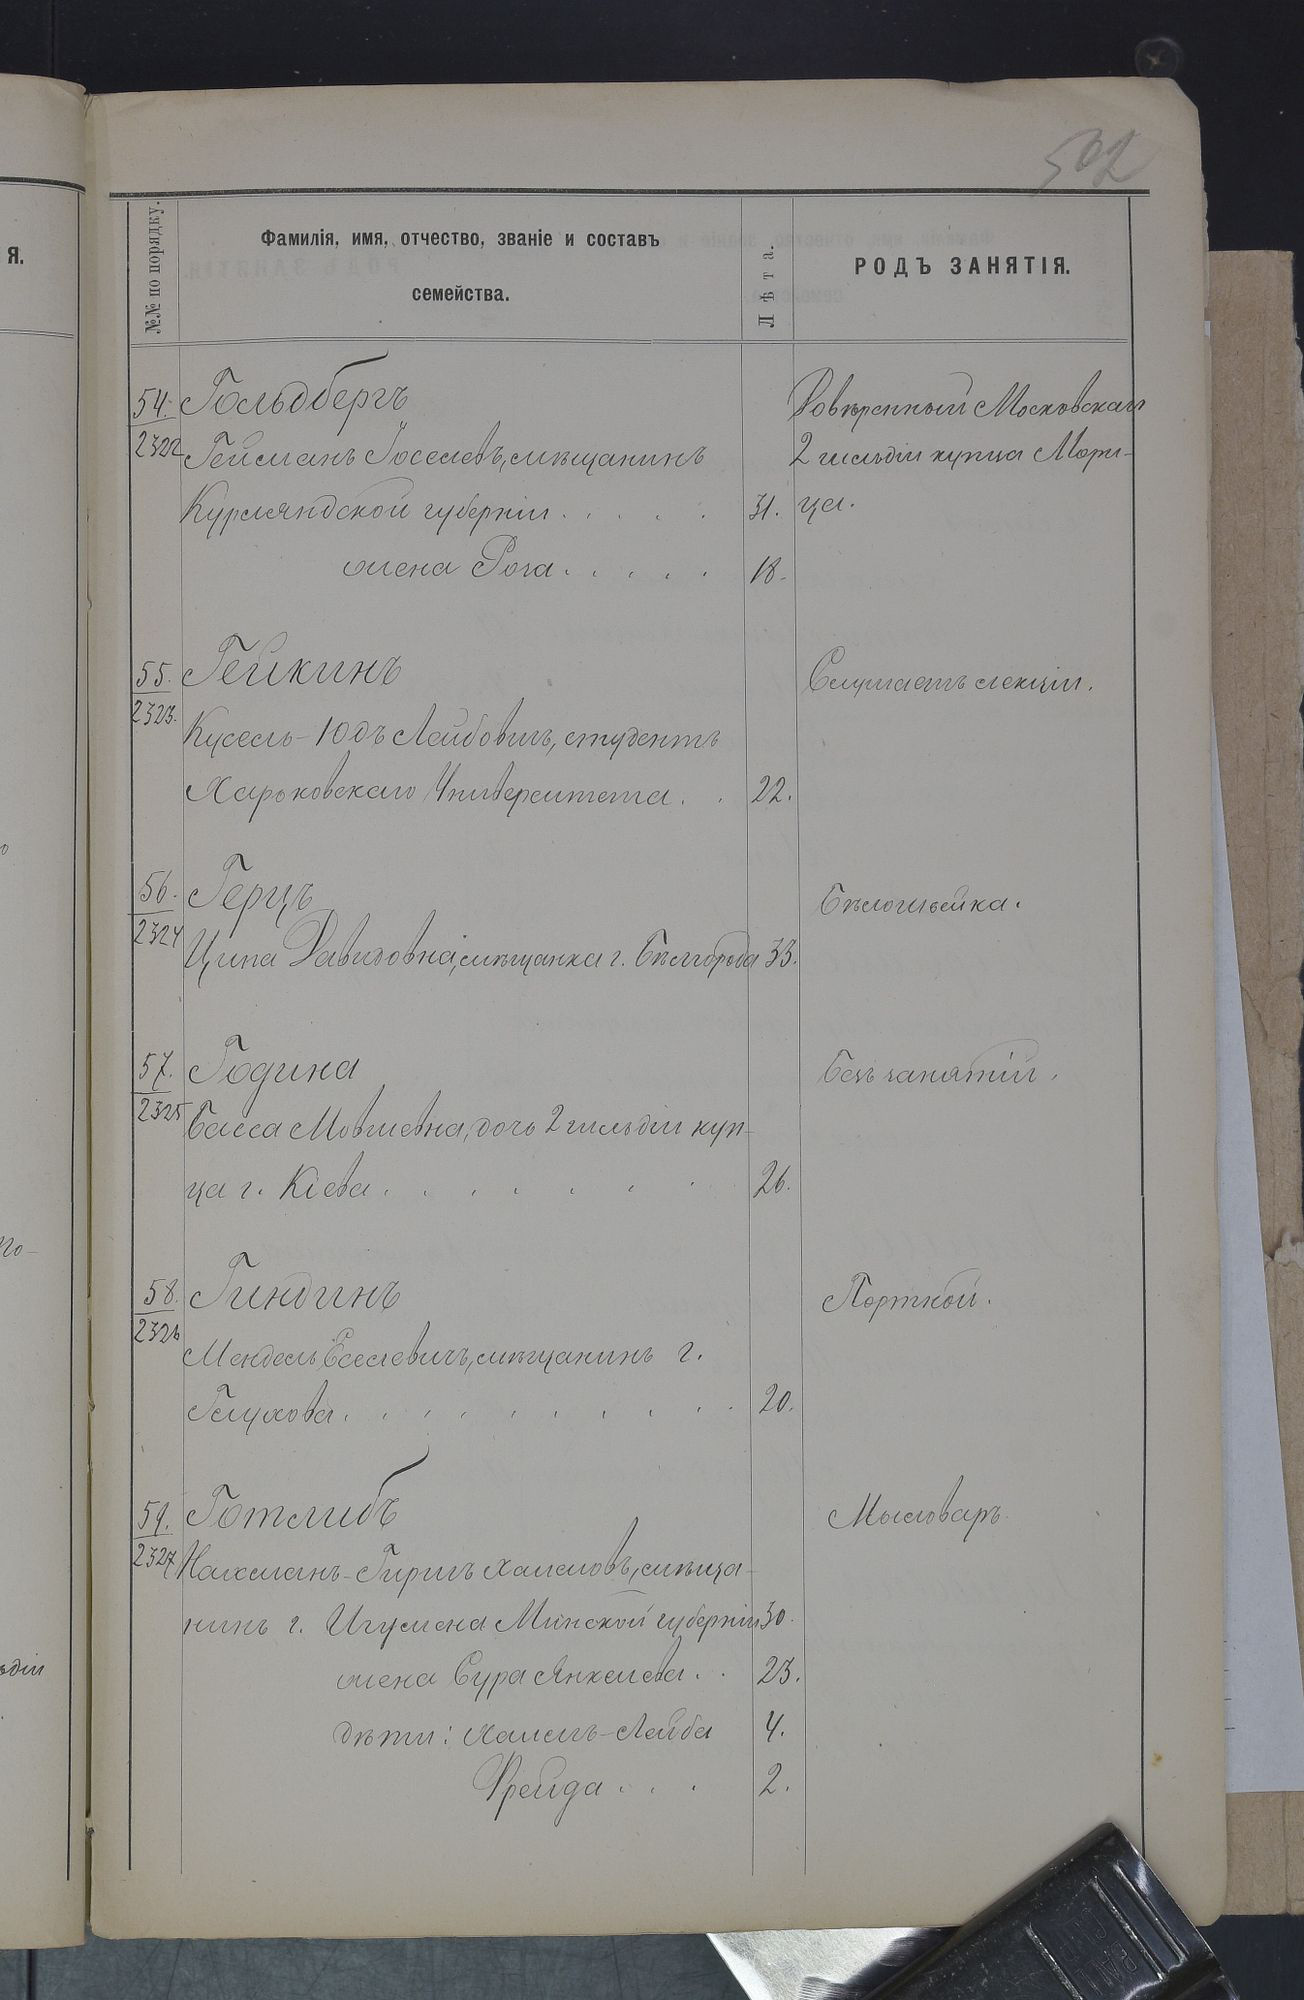 502
я.
№№ по порядку.
Фамилія, имя, отчество, званіе и составъ
семейства.
Лѣта.
РОДЪ ЗАНЯТІЯ.
54. Гольдбергъ
2322
Гейманъ Іоселевъ, мѣщанинъ
Курляндской губерніи . . . . . 31.
жена Роза . . . . . 18.
Довѣренный Московскаго
2 гильдіи купца Мори-
ца.
55. Гейкинъ
2323.
Кусель-Юдъ Лейбовичъ, студентъ
Харьковскаго Университета . . 22.
Слушаетъ лекціи.
56. Герцъ
2324
Ципа Давидовна, мѣщанка г. Бѣлгорода 33.
Бѣлошвейка.
57. Година
2325
Басса Мовшевна, дочь 2 гильдіи куп-
ца г. Кіева . . . . . . . 26.
Безъ занятій.
58. Гиндинъ
2326
Мендель Еселевичъ, мѣщанинъ г.
Глухова . . . . . . . . . . 20.
Портной.
59. Готлибъ
2327
Нахманъ-Гиршъ Хаимовъ, мѣща-
нинъ г. Игумена Минской губерніи 30.
жена Сура Янкелева . . 23.
дѣти: Хаимъ-Лейба 4.
Фрейда . . . 2.
Мыловаръ.
ьдіи